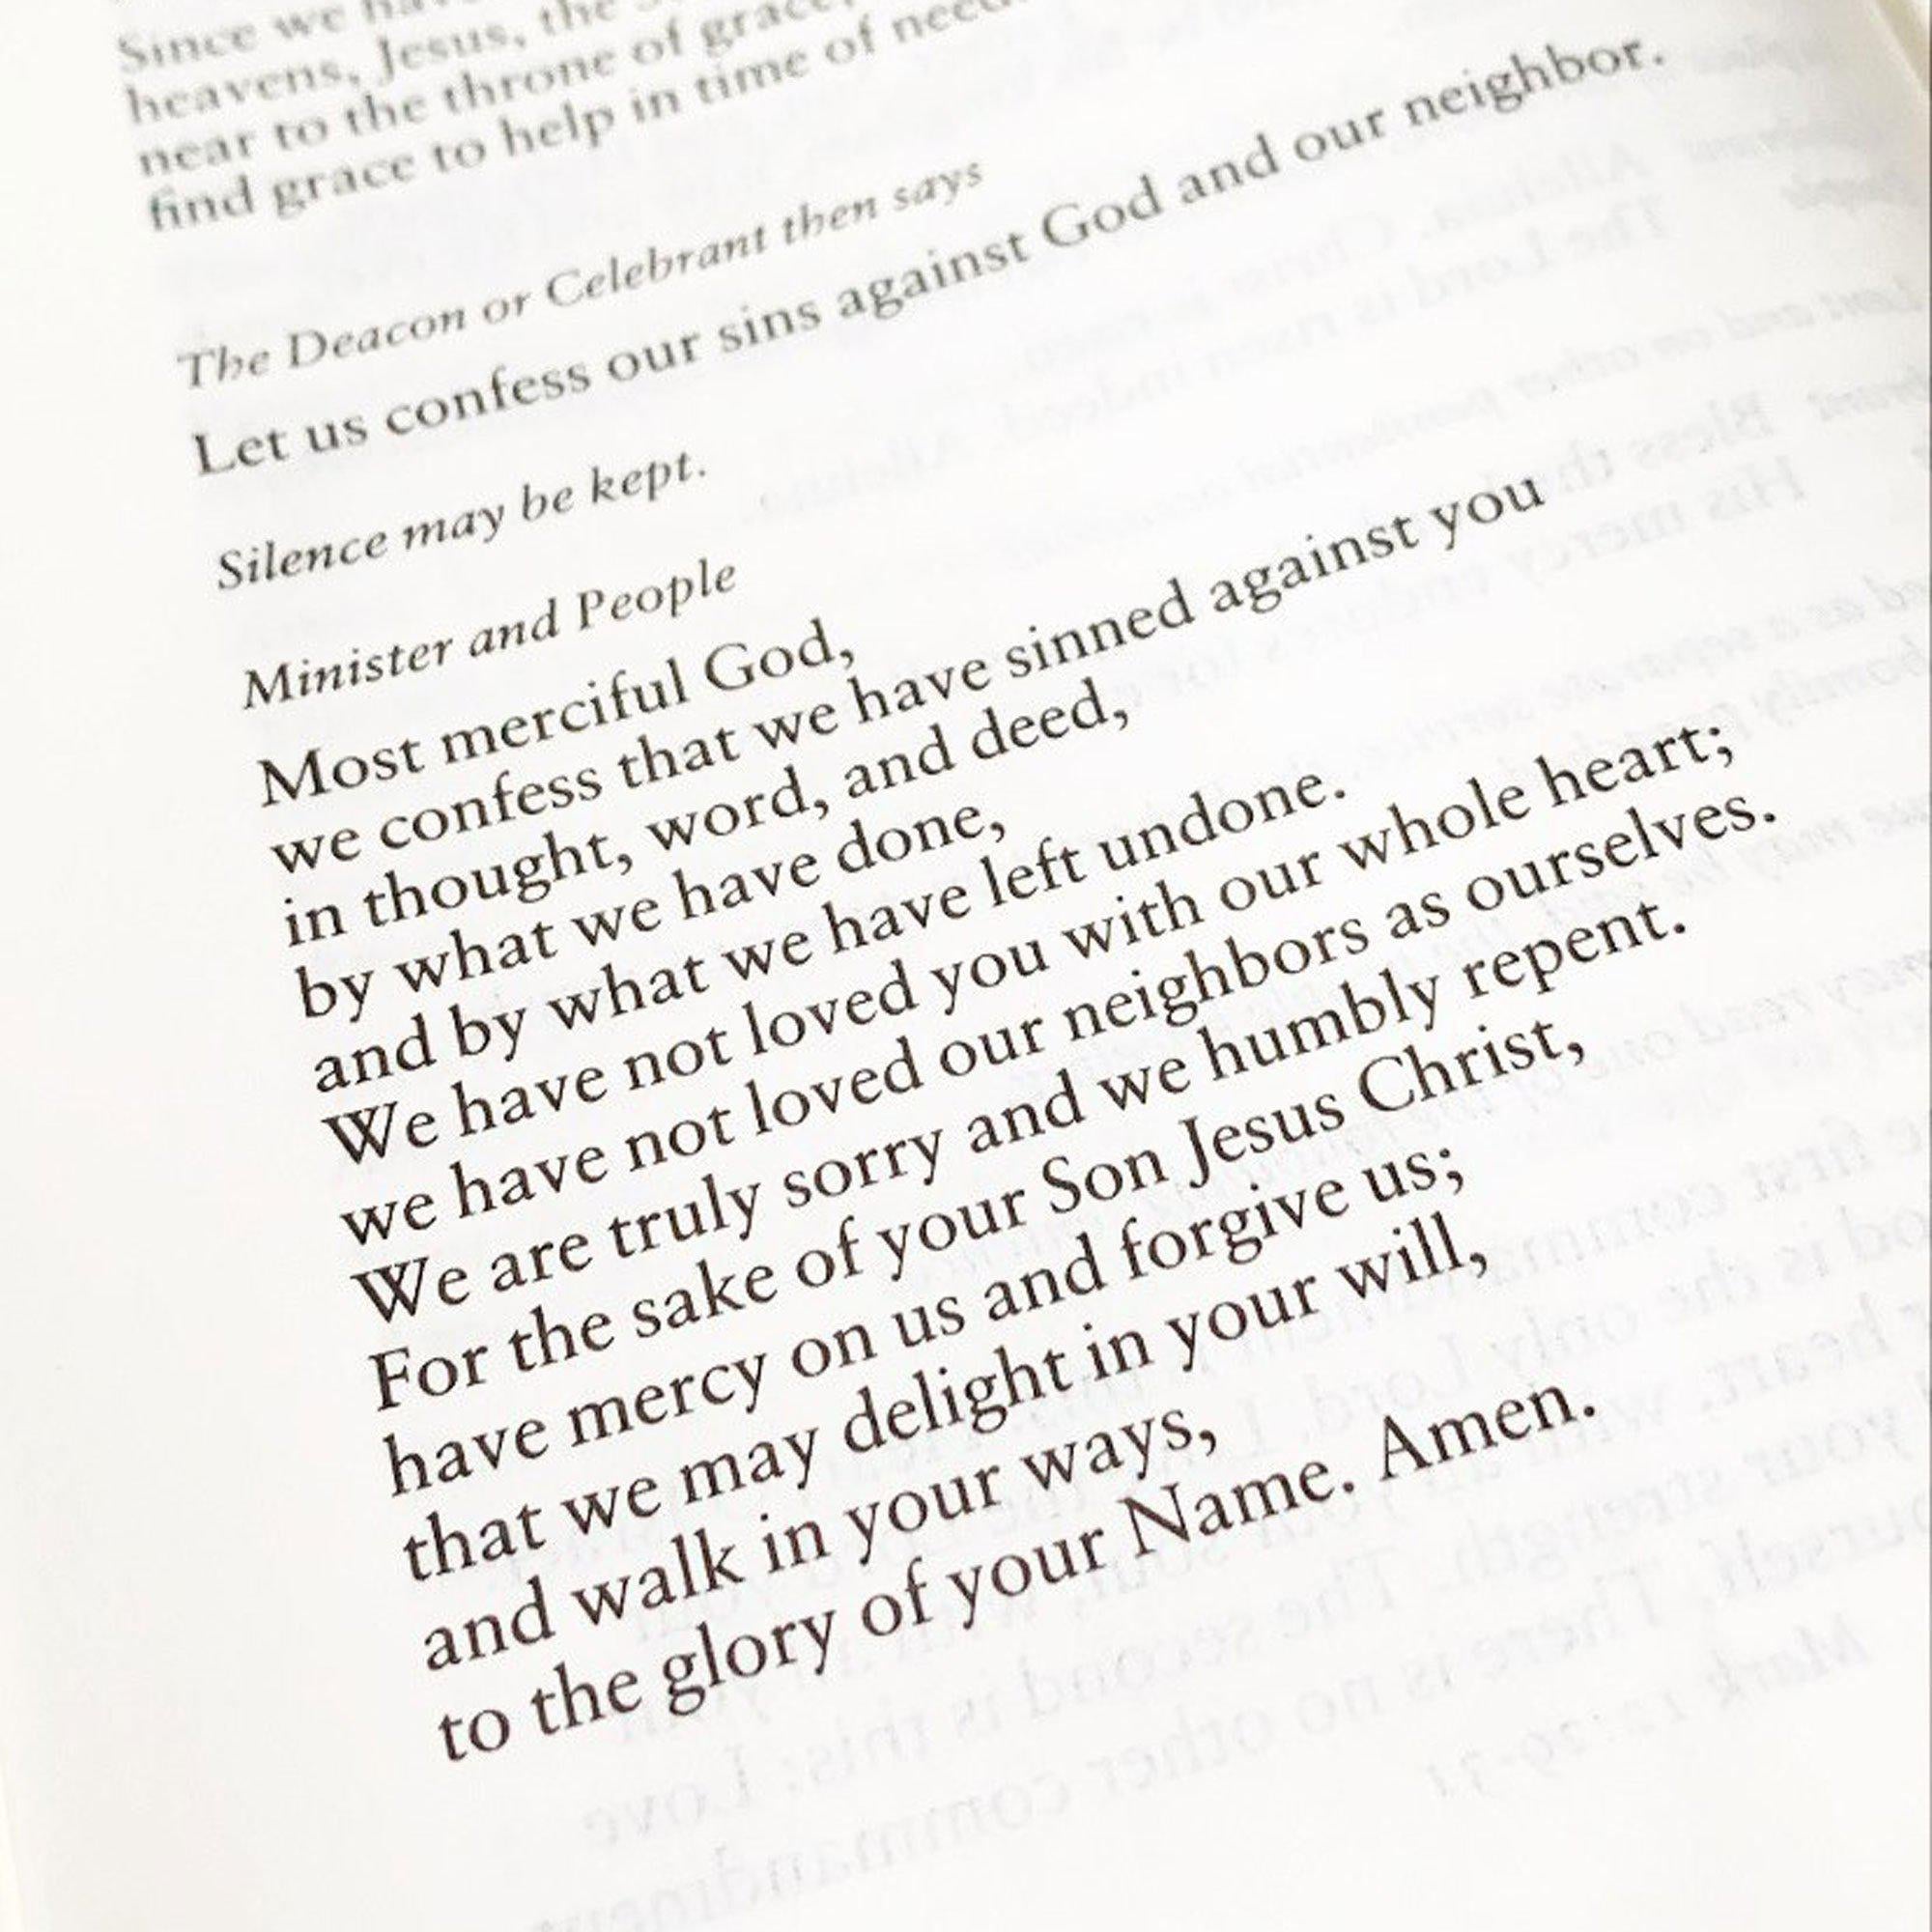 Since we have
heavens, Jesus, the
near to the throne of grace,
find grace to help in time of need
The Deacon or Celebrant then says
Let us confess our sins against God and our neighbor.
Silence may be kept.
Minister and People
Most merciful God,
we confess that we have sinned against you
in thought, word, and deed,
by what we have done,
and by what we have left undone.
We have not loved you with our whole heart;
we have not loved our neighbors as ourselves.
We are truly sorry and we humbly repent.
For the sake of your Son Jesus Christ,
have mercy on us and forgive us;
that we may delight in your will,
and walk in your ways,
to the glory of your Name. Amen.